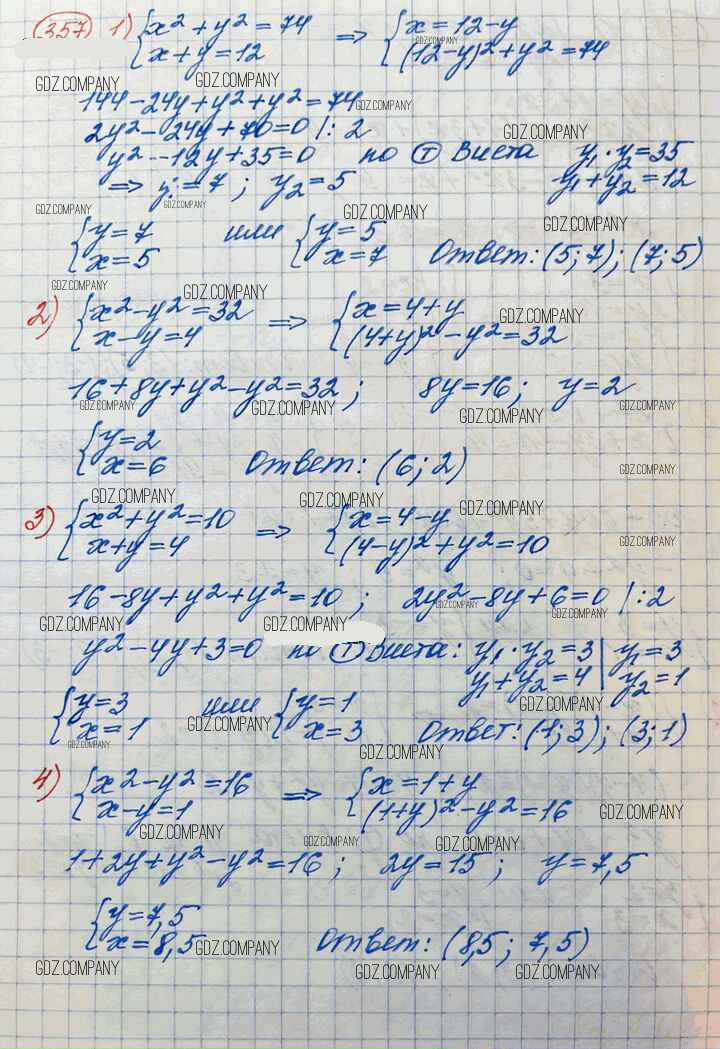 357) 1) {x² + y² = 74 => {x = 12 - y
x + y = 12 (12 - y)² + y² = 74
GDZ.COMPANY
GDZ.COMPANY GDZ.COMPANY
144 - 24y + y² + y² = 74 GDZ.COMPANY
2y² - 24y + 70 = 0 /: 2 GDZ.COMPANY
y² - 12y + 35 = 0 по Ⓣ Виета y₁ · y₂ = 35
=> y₁ = 7 ; y₂ = 5 y₁ + y₂ = 12
GDZ.COMPANY GDZ.COMPANY GDZ.COMPANY
{y = 7 или {y = 5 GDZ.COMPANY
x = 5 x = 7 Ответ: (5; 7); (7; 5)
GDZ.COMPANY GDZ.COMPANY
2) {x² - y² = 32 => {x = 4 + y GDZ.COMPANY
x - y = 4 (4 + y)² - y² = 32
16 + 8y + y² - y² = 32 ; 8y = 16 ; y = 2
GDZ.COMPANY GDZ.COMPANY GDZ.COMPANY GDZ.COMPANY
{y = 2
x = 6 Ответ: (6; 2) GDZ.COMPANY
GDZ.COMPANY GDZ.COMPANY GDZ.COMPANY
3) {x² + y² = 10 => {x = 4 - y
x + y = 4 (4 - y)² + y² = 10 GDZ.COMPANY
16 - 8y + y² + y² = 10 ; 2y² - 8y + 6 = 0 /: 2
GDZ.COMPANY GDZ.COMPANY GDZ.COMPANY GDZ.COMPANY
y² - 4y + 3 = 0 по Ⓣ Виета: y₁ · y₂ = 3 | y₁ = 3
y₁ + y₂ = 4 | y₂ = 1
{y = 3 или {y = 1 GDZ.COMPANY
x = 1 GDZ.COMPANY x = 3 Ответ: (1; 3); (3; 1)
GDZ.COMPANY GDZ.COMPANY
4) {x² - y² = 16 => {x = 1 + y
x - y = 1 (1 + y)² - y² = 16 GDZ.COMPANY
GDZ.COMPANY GDZ.COMPANY GDZ.COMPANY
1 + 2y + y² - y² = 16 ; 2y = 15 ; y = 7,5
{y = 7,5
x = 8,5 GDZ.COMPANY Ответ: (8,5 ; 7,5)
GDZ.COMPANY GDZ.COMPANY GDZ.COMPANY